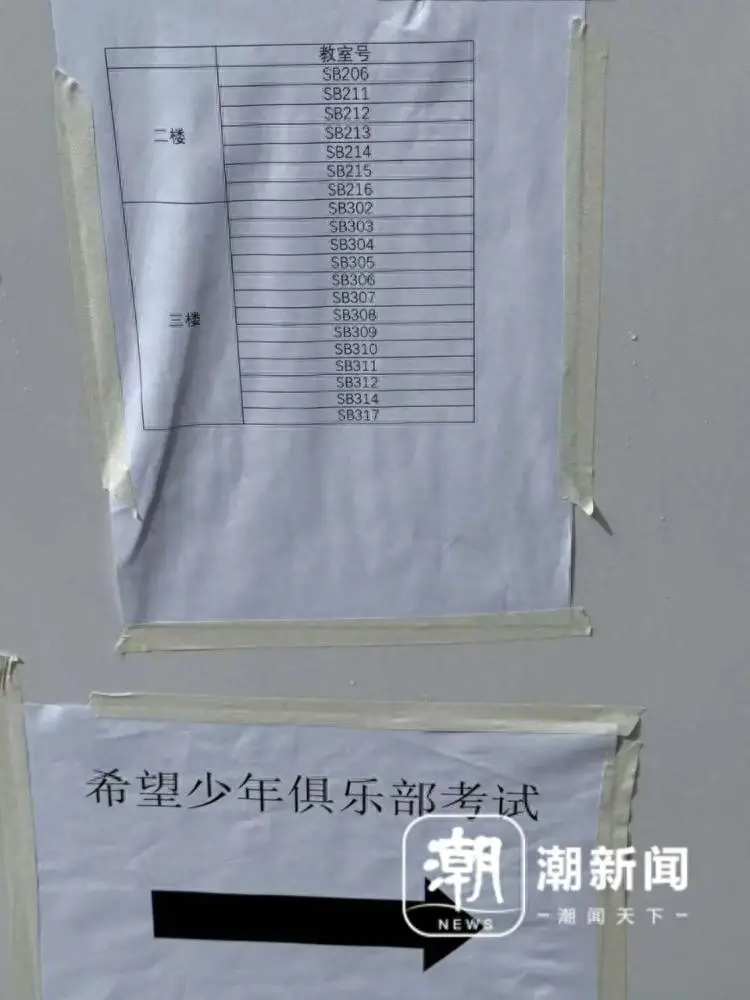 教室号
二楼
SB206
SB211
SB212
SB213
SB214
SB215
SB216
三楼
SB302
SB303
SB304
SB305
SB306
SB307
SB308
SB309
SB310
SB311
SB312
SB314
SB317
希望少年俱乐部考试
潮
NEWS
潮新闻
-潮闻天下-